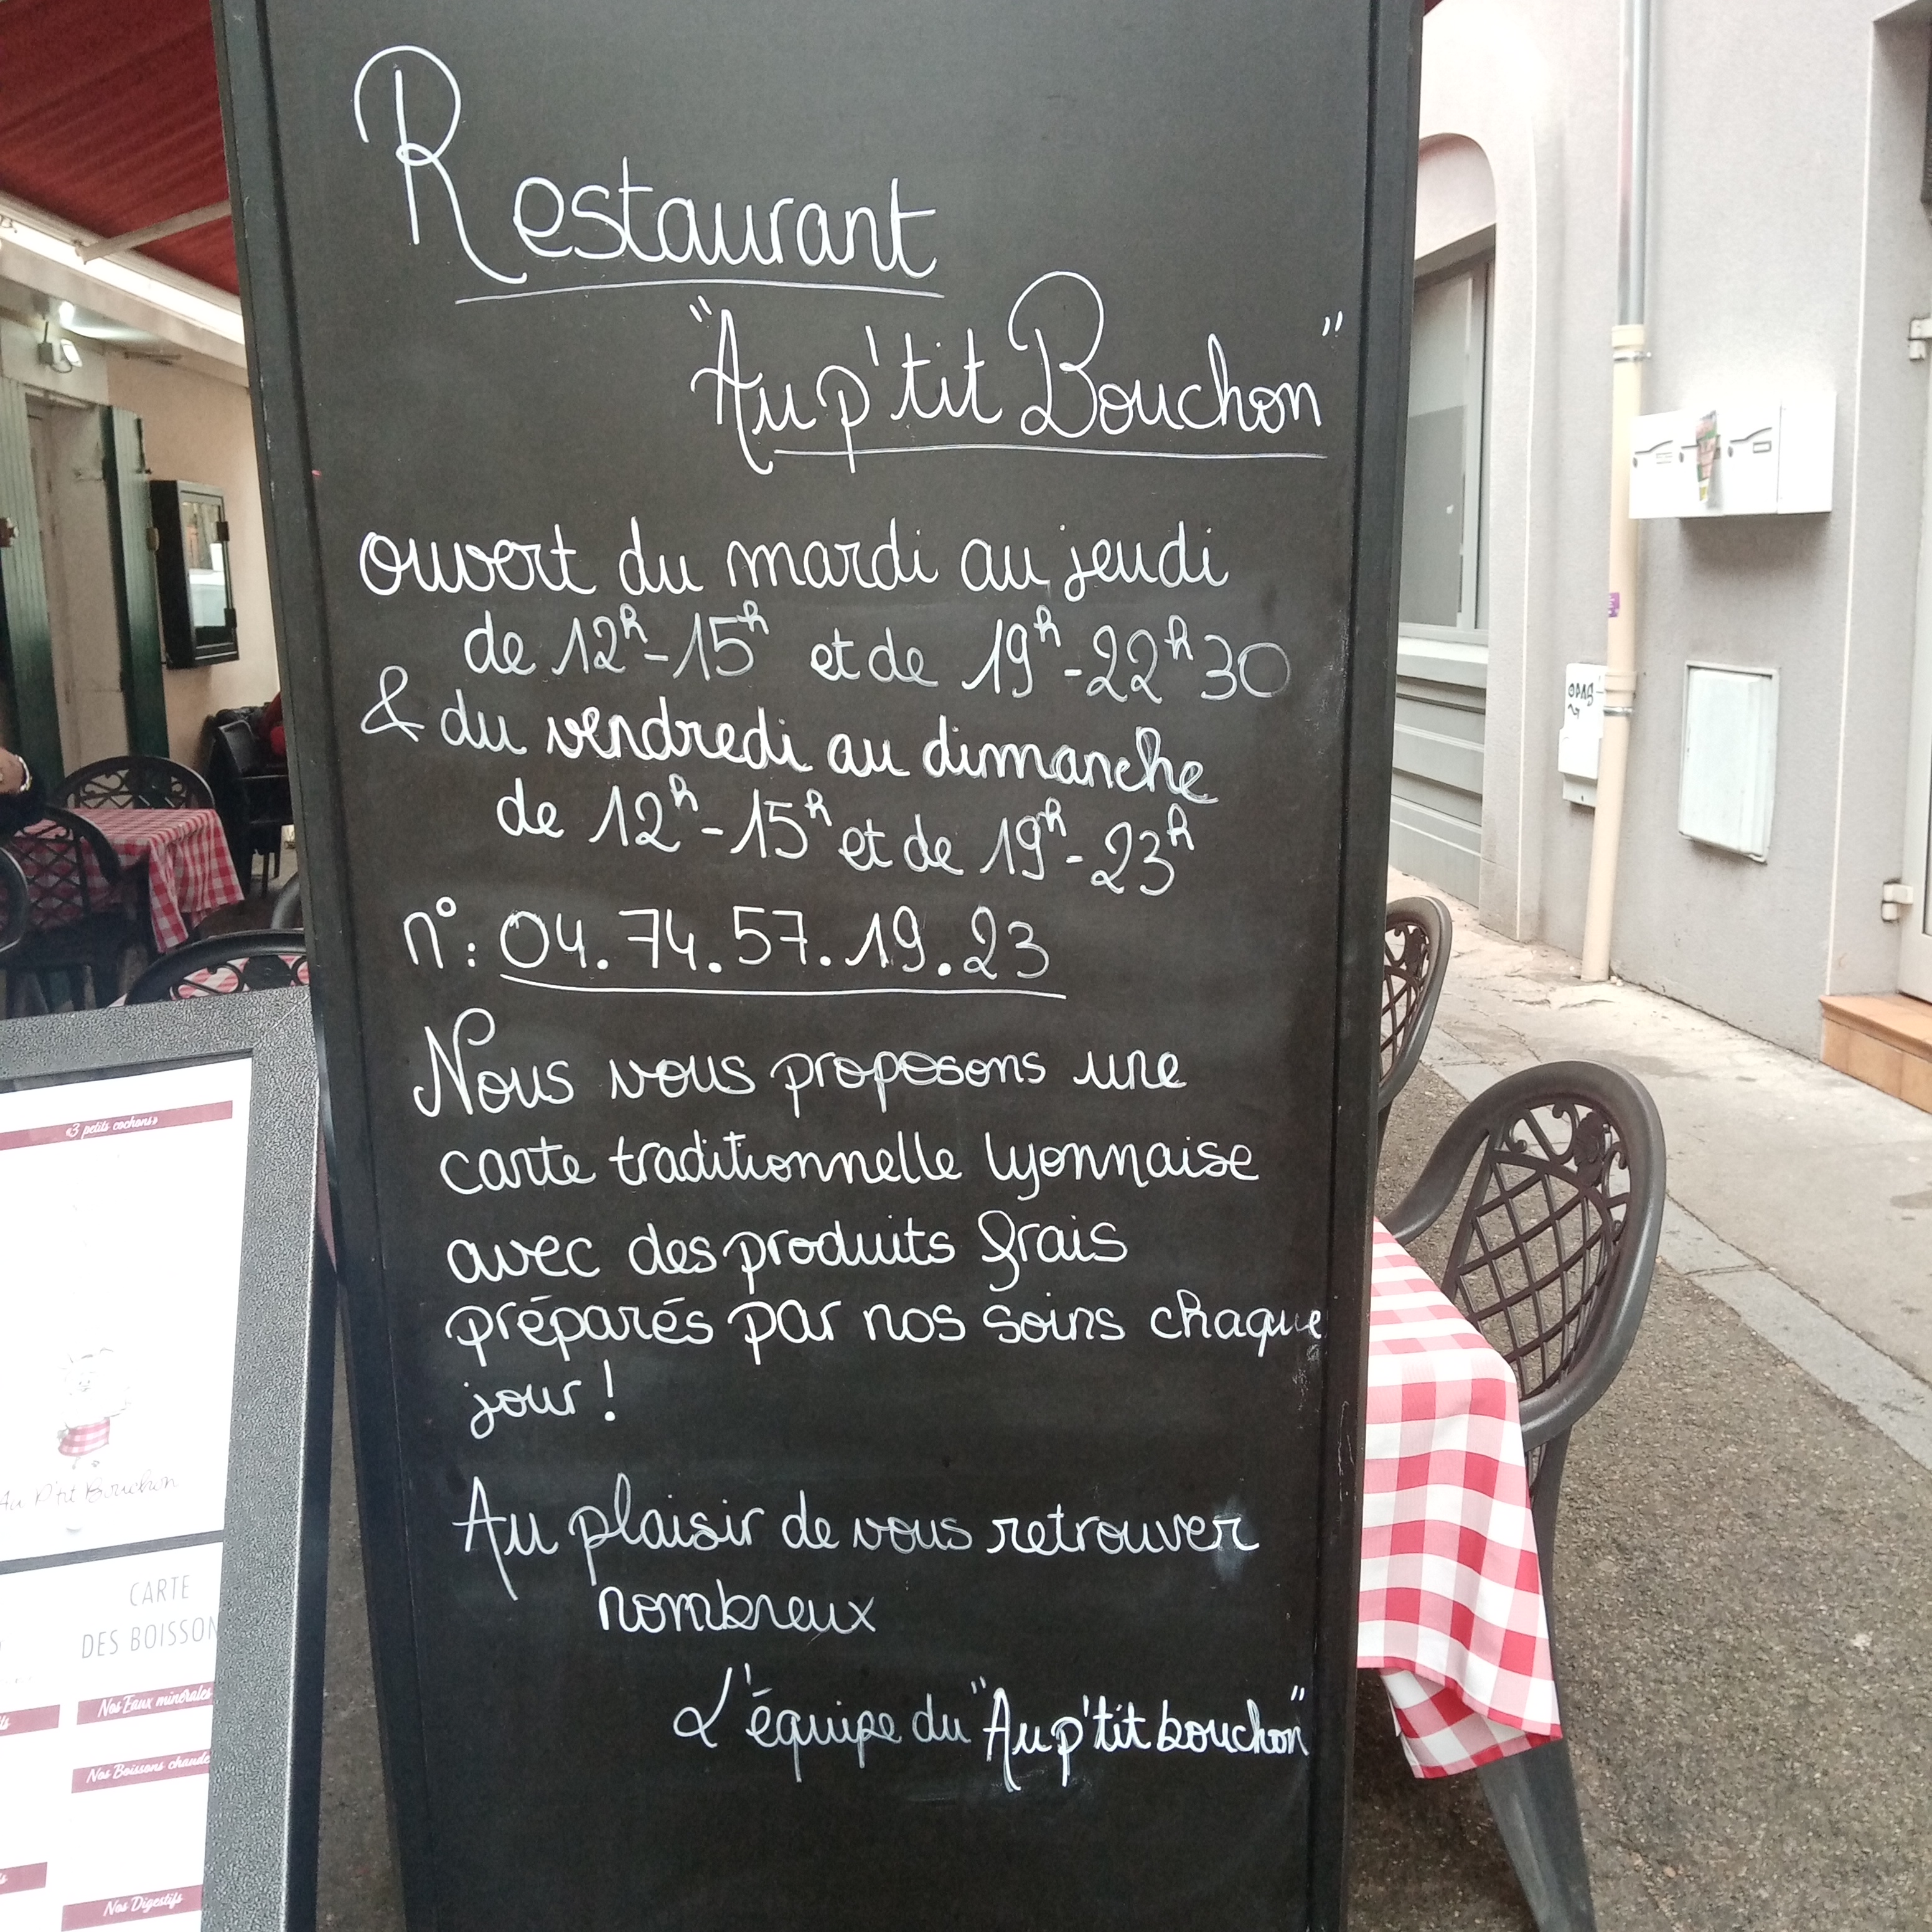 Restaurant
"Au p'tit Bouchon"
ouvert du mardi au jeudi
de 12h-15h et de 19h-22h30
& du vendredi au dimanche
de 12h-15h et de 19h-23h
n°: 04.74.57.19.23
Nous vous proposons une
carte traditionnelle lyonnaise
avec des produits frais
préparés par nos soins chaque
jour !
Au plaisir de vous retrouver
nombreux
L'équipe du "Au p'tit bouchon"
«3 petits cochons»
Au P'tit Bouchon
CARTE
DES BOISSON
Nos Eaux minérales
Nos Boissons chaude
Nos Digestifs